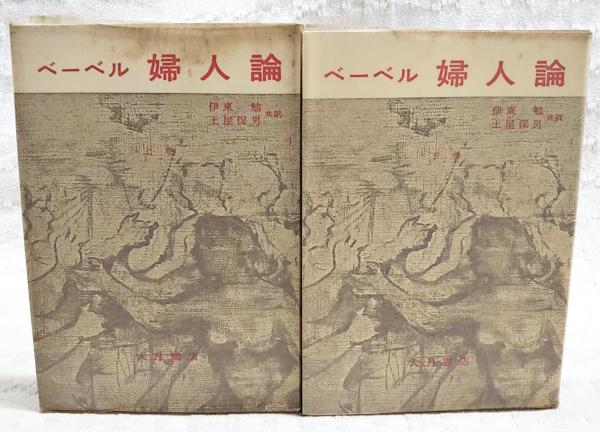 ベーベル 婦人論
伊東 勉
土屋保男 共訳
上巻
大月書店
ベーベル 婦人論
伊東 勉
土屋保男 共訳
下巻
大月書店